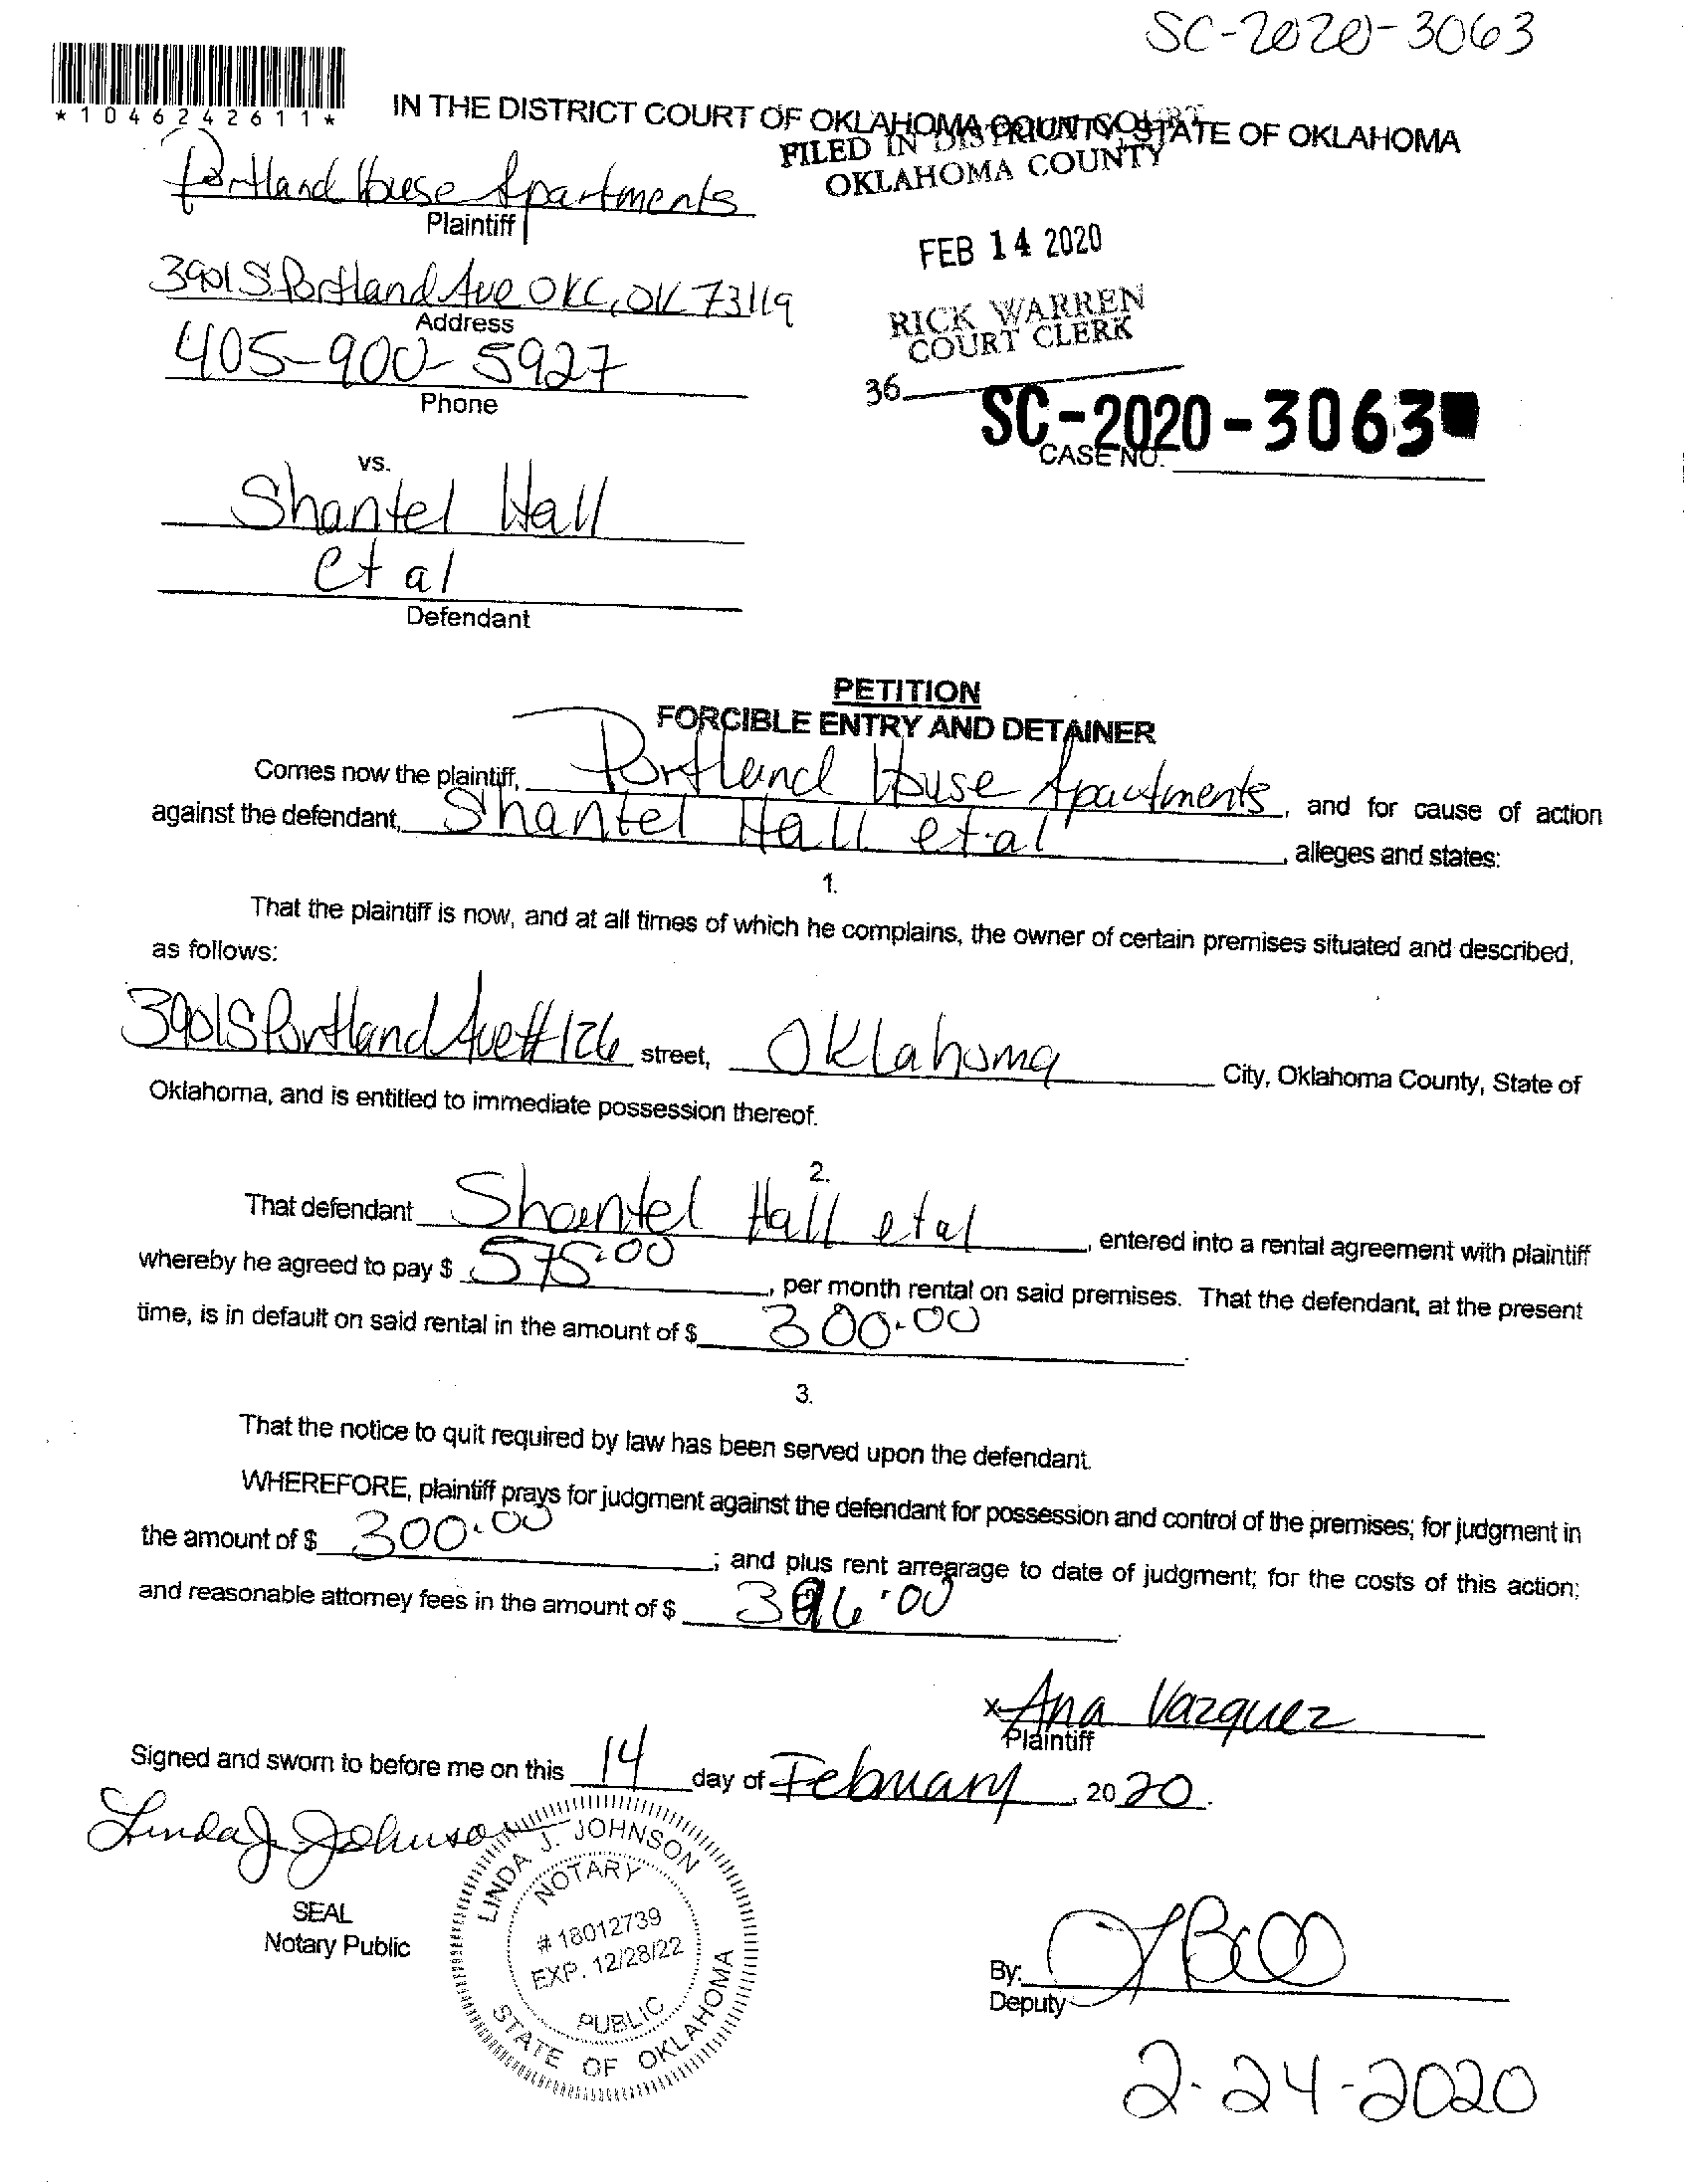 SC-2020-3063
*1046242611*
IN THE DISTRICT COURT OF OKLAHOMA COUNTY, STATE OF OKLAHOMA
FILED IN DISTRICT COURT
OKLAHOMA COUNTY
Portland House Apartments
Plaintiff
FEB 14 2020
3901 S. Portland Ave OKC, OK 73119
Address
RICK WARREN
COURT CLERK
405-900-5927
Phone
36
SC-2020-3063
CASE NO.
vs.
Shantel Hall
et al
Defendant
PETITION
FORCIBLE ENTRY AND DETAINER
Comes now the plaintiff, Portland House Apartments, and for cause of action
against the defendant, Shantel Hall et al, alleges and states:
1.
That the plaintiff is now, and at all times of which he complains, the owner of certain premises situated and described,
as follows:
3901 S Portland Ave #126 street, Oklahoma City, Oklahoma County, State of
Oklahoma, and is entitled to immediate possession thereof.
2.
That defendant Shantel Hall et al, entered into a rental agreement with plaintiff
whereby he agreed to pay $ 575.00, per month rental on said premises. That the defendant, at the present
time, is in default on said rental in the amount of $ 300.00.
3.
That the notice to quit required by law has been served upon the defendant.
WHEREFORE, plaintiff prays for judgment against the defendant for possession and control of the premises; for judgment in
the amount of $ 300.00; and plus rent arrearage to date of judgment; for the costs of this action;
and reasonable attorney fees in the amount of $
x Ana Vazquez
Plaintiff
Signed and sworn to before me on this 14 day of February, 2020.
Linda J. Johnson
LINDA J. JOHNSON
NOTARY
# 18012739
EXP. 12/28/22
PUBLIC
STATE OF OKLAHOMA
SEAL
Notary Public
By:
Deputy
2-24-2020